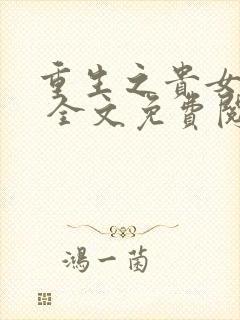 重生之貴女
全文免費閱
鴻一菌